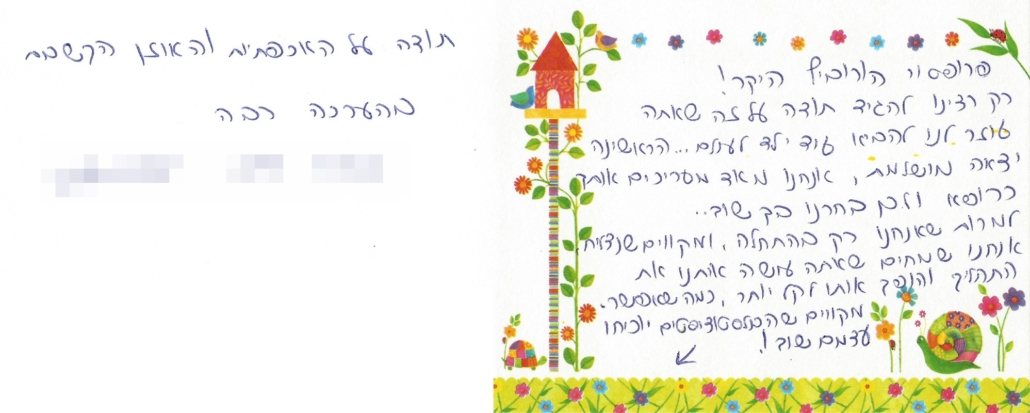 פרופסור הורוביץ היקר!
רק רצינו להגיד תודה על זה שאתה
עוזר לנו להביא עוד ילד לעולם... הראשונה
יצאה מושלמת, אנחנו מאד מעריכים אותך
כרופא ולכן בחרנו בך שוב..
למרות שאנחנו רק בהתחלה, ומקווים שנצליח,
אנחנו שמחים שאתה עושה איתנו את
התהליך והופך אותו לקל יותר, כמה שאפשר.
מקווים שהבלסטוציסטים יוכיחו
עצמם שוב!
תודה על האכפתיות והאוזן הקשבת
בהערכה רבה